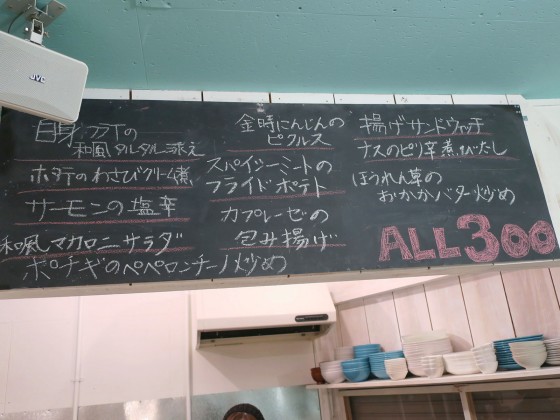 JVC
白身フライの
和風タルタル添え
ホタテのわさびクリーム煮
サーモンの塩辛
和風マカロニサラダ
ポテギのペペロンチーノ炒め
金時にんじんの
ピクルス
スパイシーミートの
フライドポテト
カプレーゼの
包み揚げ
揚げサンドウィッチ
ナスのピリ辛煮びたし
ほうれん草の
おかかバター炒め
ALL300